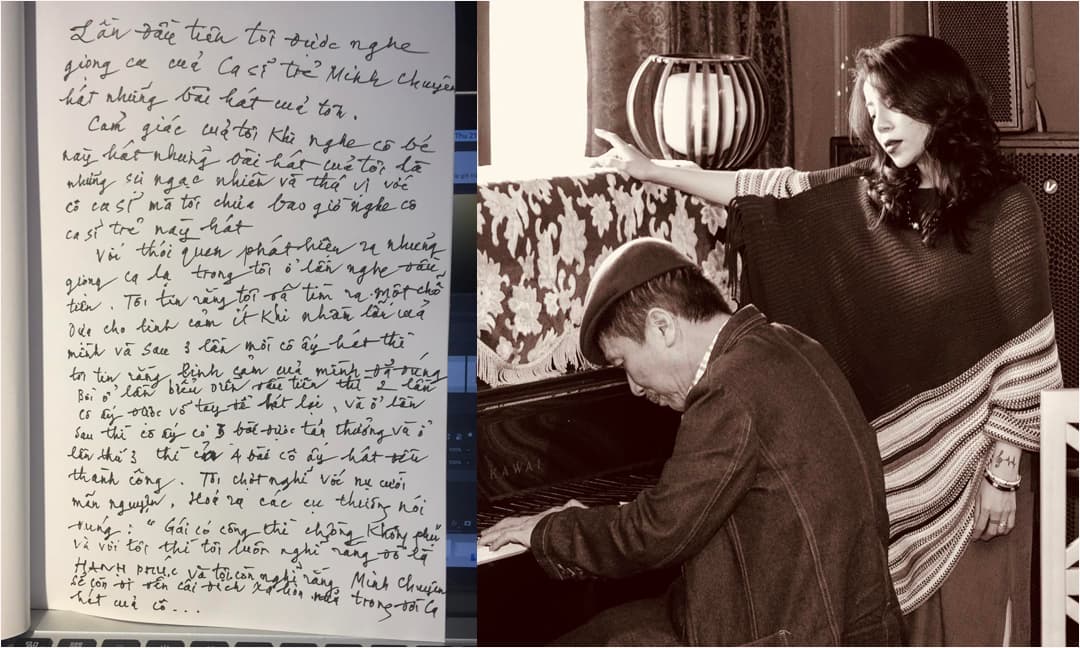 Lần đầu tiên tôi được nghe
giọng ca của Ca sĩ trẻ Minh Chuyên
hát những bài hát của tôi.
Cảm giác của tôi khi nghe cô bé
này hát những bài hát của tôi là
những sự ngạc nhiên và thú vị với
cô ca sĩ mà tôi chưa bao giờ nghe cô
ca sĩ trẻ này hát
Với thói quen phát hiện ra những
giọng ca lạ trong tôi ở lần nghe đầu
tiên. Tôi tin rằng tôi đã tìm ra một chỗ
dựa cho linh cảm ít khi nhầm lẫn của
mình và sau 3 lần mời cô ấy hát thì
tôi tin rằng linh cảm của mình đã đúng
Bởi ở lần biểu diễn đầu tiên thì 2 lần
cô ấy được vỗ tay để hát lại, và ở lần
sau thì cô ấy có 3 bài được tán thưởng và ở
lần thứ 3 thì cả 4 bài cô ấy hát đều
thành công. Tôi chợt nghĩ với nụ cười
mãn nguyện. Hoá ra các cụ thường nói
đúng: "Gái có công thì chồng không phụ"
và với tôi thì tôi luôn nghĩ rằng đó là
HẠNH PHÚC và tôi còn nghĩ rằng Minh Chuyên
sẽ còn đi đến cái đích xa hơn nữa trong đời ca
hát của cô...
KAWAI